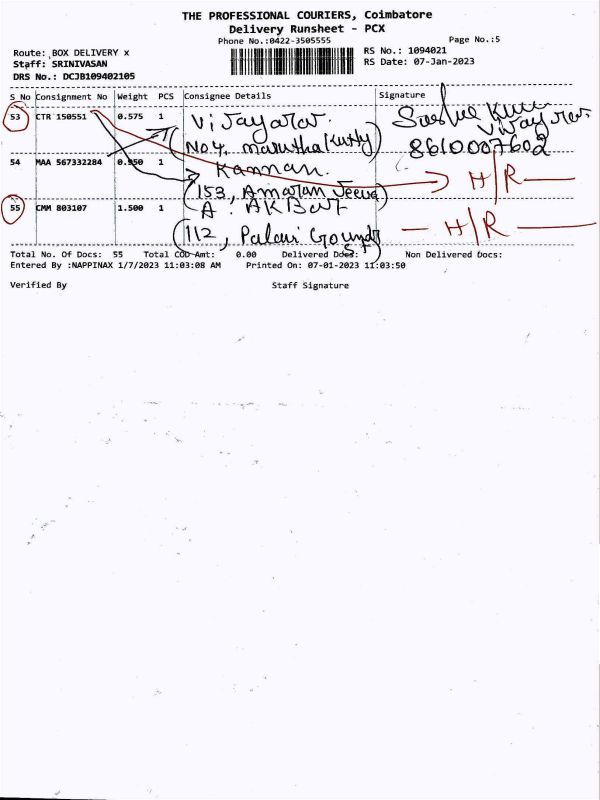 THE PROFESSIONAL COURIERS, Coimbatore
Delivery Runsheet - PCX
Phone No.:0422-3505555
Page No.:5
Route: BOX DELIVERY x
Staff: SRINIVASAN
DRS No.: DCJB109402105
RS No.: 1094021
RS Date: 07-Jan-2023
S No Consignment No Weight PCS Consignee Details Signature
53 CTR 150551 0.575 1 Vijayarar.
(No 4, marutha kutty)
Vijayarar
8610007602
54 MAA 567332284 0.350 1 Kannan.
(153, Amaram Jeeva) H/R
55 CMM 803107 1.500 1 A. AKBar
(112, Palani Gounder St) H/R
Total No. Of Docs: 55 Total COD Amt: 0.00 Delivered Docs: Non Delivered Docs:
Entered By :NAPPINAX 1/7/2023 11:03:08 AM Printed On: 07-01-2023 11:03:50
Verified By Staff Signature